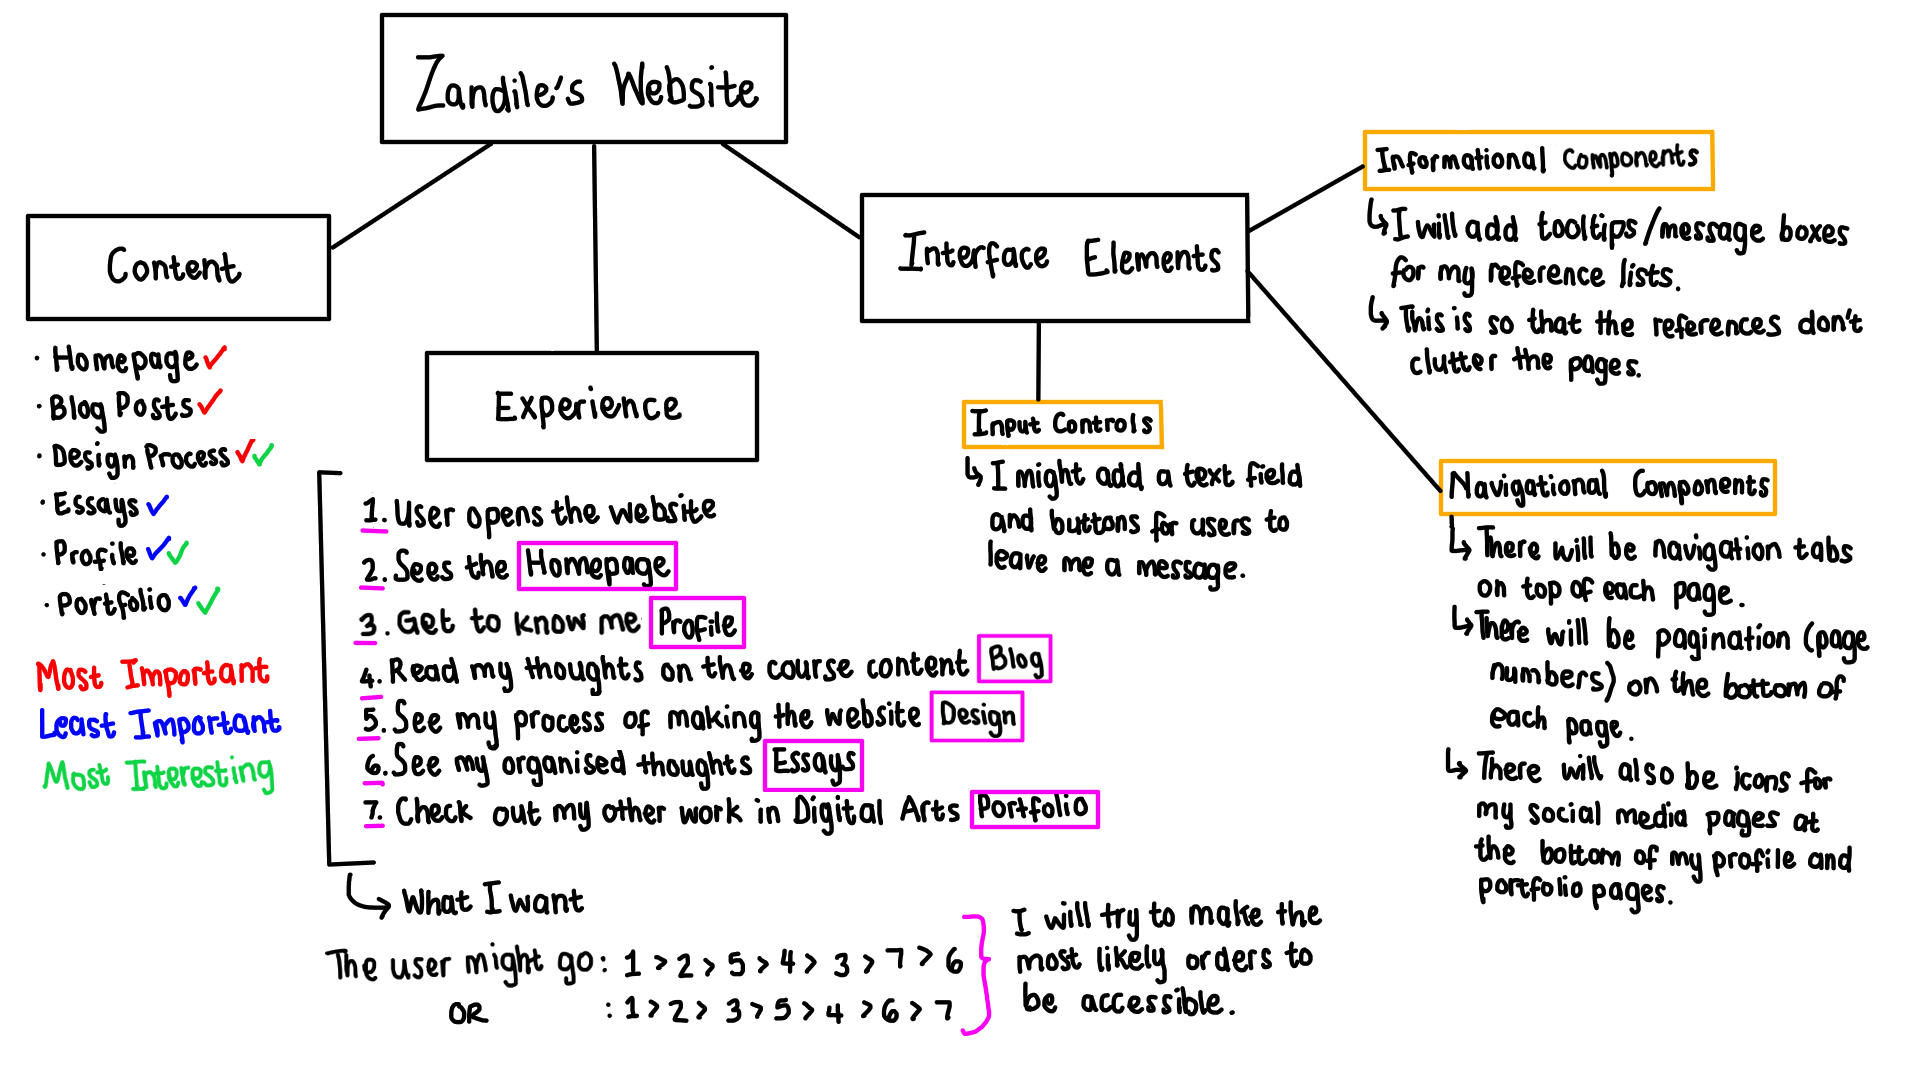 Zandile's Website
Content
· Homepage ✓
· Blog Posts ✓
· Design Process ✓✓
· Essays ✓
· Profile ✓✓
· Portfolio ✓✓
Most Important
Least Important
Most Interesting
Experience
1. User opens the website
2. Sees the Homepage
3. Get to know me Profile
4. Read my thoughts on the course content Blog
5. See my process of making the website Design
6. See my organised thoughts Essays
7. Check out my other work in Digital Arts Portfolio
What I want
The user might go: 1 > 2 > 5 > 4 > 3 > 7 > 6
OR : 1 > 2 > 3 > 5 > 4 > 6 > 7
I will try to make the
most likely orders to
be accessible.
Interface Elements
Input Controls
↳ I might add a text field
and buttons for users to
leave me a message.
Informational Components
↳ I will add tooltips/message boxes
for my reference lists.
↳ This is so that the references don't
clutter the pages.
Navigational Components
↳ There will be navigation tabs
on top of each page.
↳ There will be pagination (page
numbers) on the bottom of
each page.
↳ There will also be icons for
my social media pages at
the bottom of my profile and
portfolio pages.